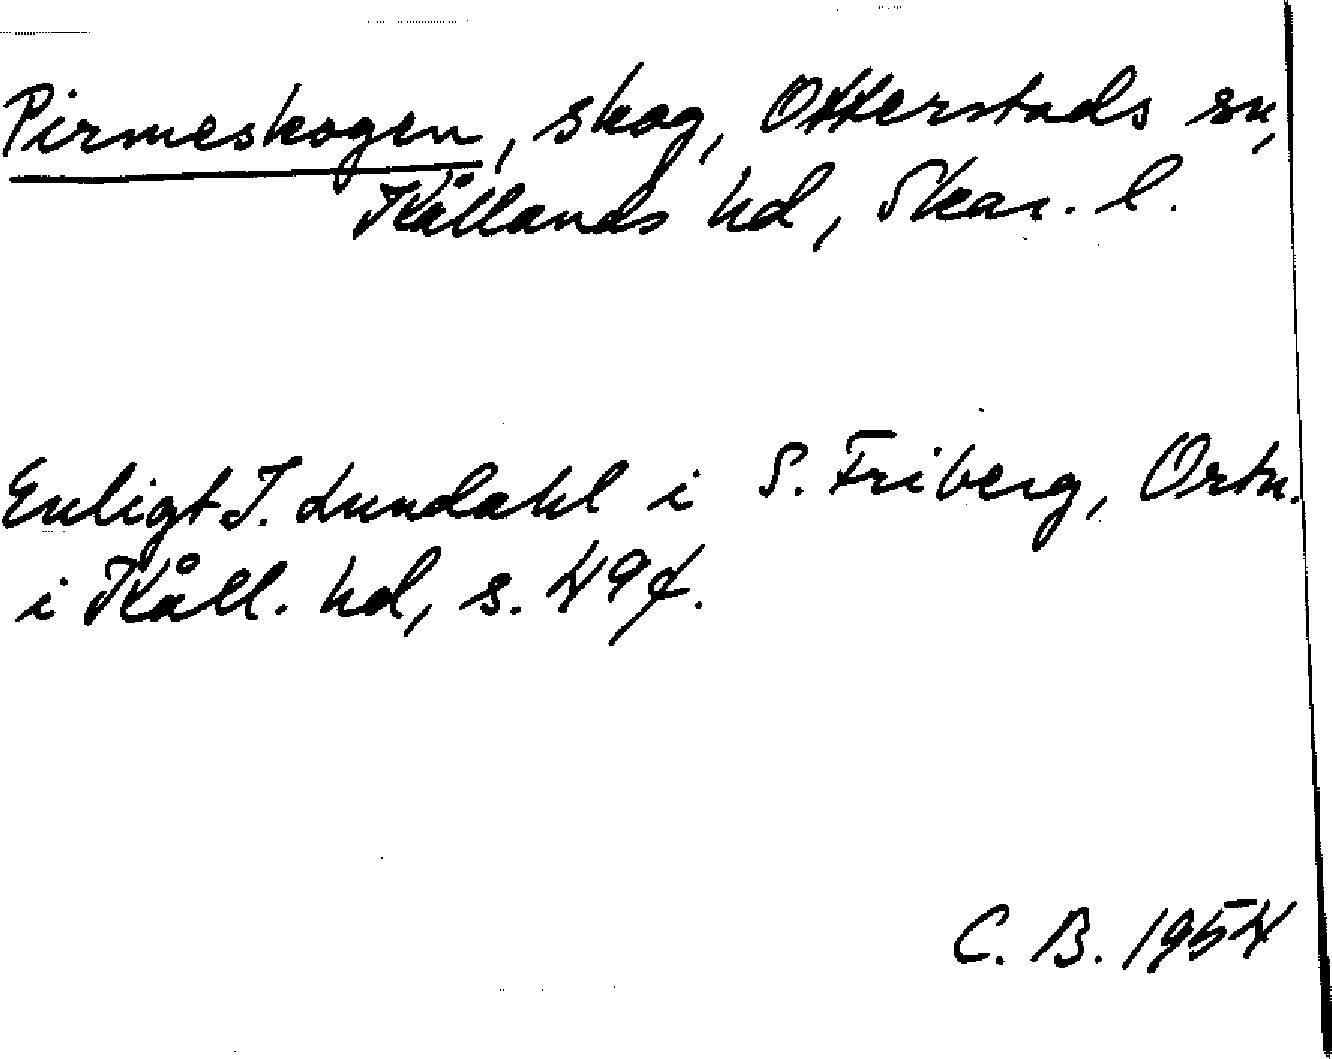 Pirmeskogen, skog, Otterstads sn,
Kållands hd, Skar. l.
Enligt I. Lundahl i S. Friberg, Ortn.
i Kåll. hd, s. 49f.
C. B. 1954